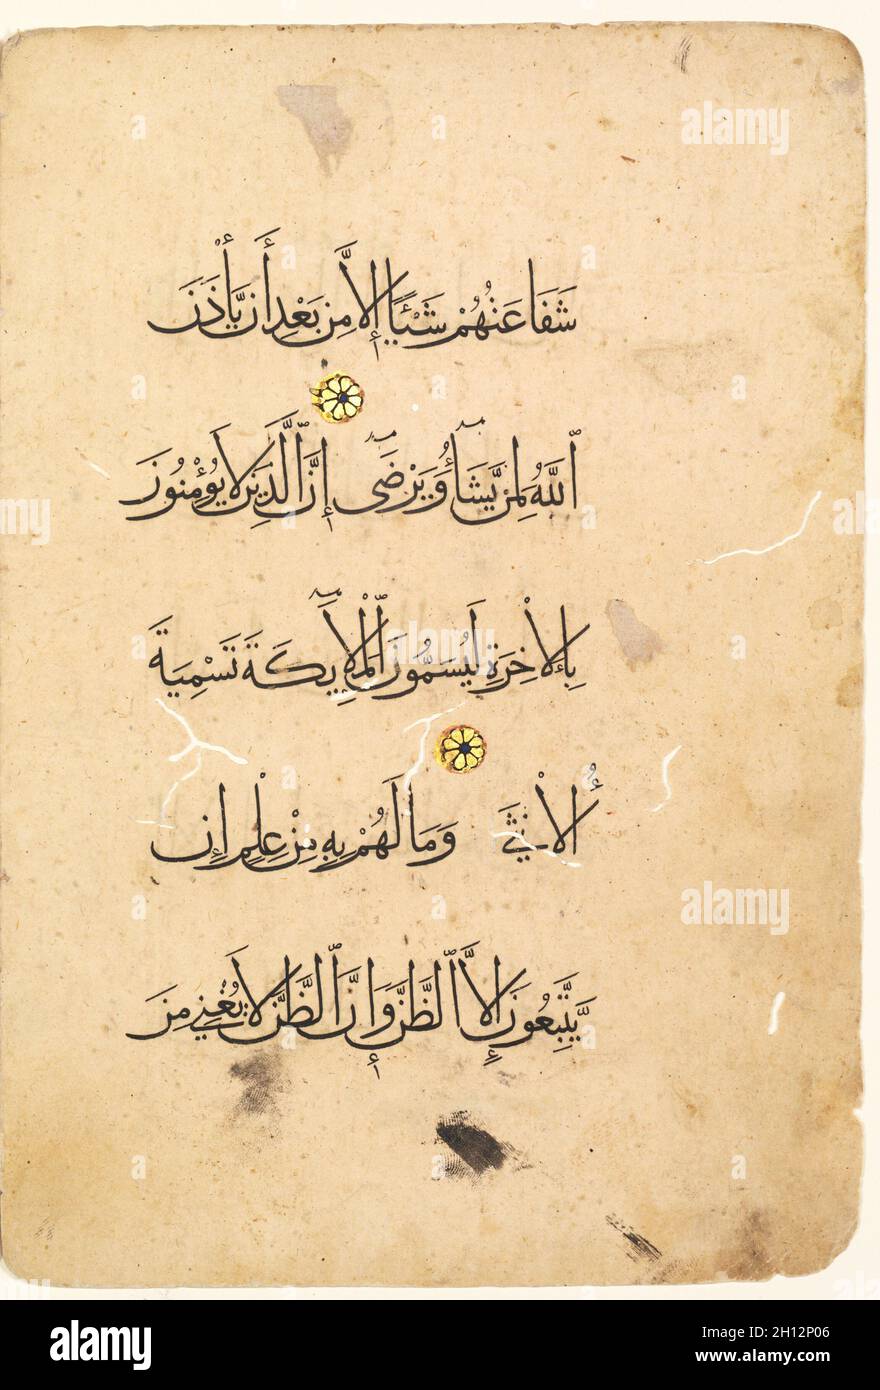 شَفَاعَتُهُمْ شَيْئًا إِلَّا مِن بَعْدِ أَن يَأْذَنَ
ٱللَّهُ لِمَن يَّشَآءُ وَيَرْضَىٓ إِنَّ ٱلَّذِينَ لَا يُؤْمِنُونَ
بِالْأَخِرَةِ لَيُسَمُّونَ ٱلْمَلَآئِكَةَ تَسْمِيَةَ
ٱلْأُنْثَى وَمَا لَهُمْ بِهِ مِنْ عِلْمٍ إِن
يَّتَّبِعُونَ إِلَّا ٱلظَّنَّ وَإِنَّ ٱلظَّنَّ لَا يُغْنِي مِنَ
alamy
alamy
alamy
Image ID: 2H12P06
www.alamy.com